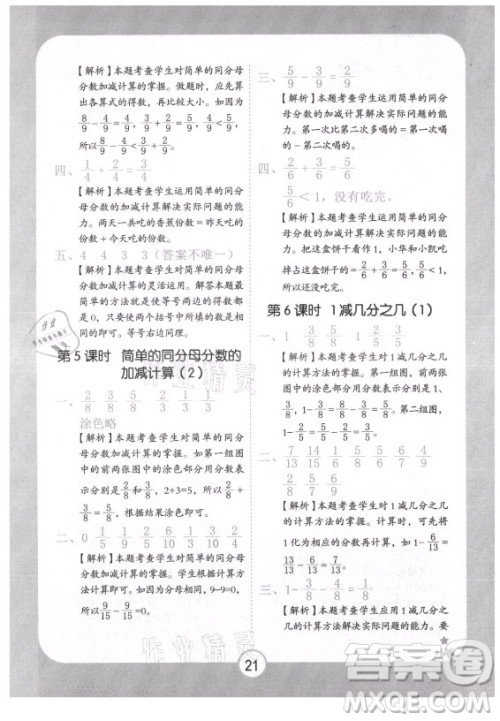 【解析】本题考查学生对简单的同分母
分数加减计算的掌握。做题时，应先算
出各算式的得数，再比较大小。因为
8/9 - 4/9 = 4/9，1/9 + 4/9 = 5/9，4/9 < 5/9，
所以 8/9 - 4/9 < 1/9 + 4/9。
四、1/4 + 2/4 = 3/4
【解析】本题考查学生运用简单的同分
母分数加减计算解决实际问题的能
力。两天一共吃的香蕉份数=昨天吃
的份数+今天吃的份数。
五、4 4 3 3（答案不唯一）
【解析】本题考查学生对简单的同分母
分数加减计算的灵活运用。本题最简
单的方法就是使等号两边的得数等于
0，只要使前两个括号中所填的数是相
同的，后两个括号中所填的数是相同的
即可。
第5课时 简单的同分母分数的
加减计算（2）
一、2/8 3/8 5/8
涂色略
【解析】本题考查学生对简单的同分母
分数加减计算的掌握。如第一组图
中的前两张图中的涂色部分可以分别
表示分数2/8和3/8，2+3=5，所以2/8+
3/8=5/8，根据结果涂色即可。
【解析】本题考查学生对简单的同分母
分数加减计算的掌握。学生根据计算
方法进行计算即可。如，因为9-9=0，所
以9/15-9/15=0。
三、5/9 - 3/9 = 2/9
【解析】本题考查学生运用简单的同分
母分数加减计算解决实际问题的能
力。第一次比第二次多喝的=第一次
喝的-第二次喝的。
四、2/6 + 3/6 = 5/6
5/6 < 1，没有吃完。
【解析】本题考查学生运用简单的同分
母分数加减计算解决实际问题的能
力。把这盒饼干看作1，小华和小凯吃
掉占这盒饼干的2/6+3/6=5/6，5/6<1，
所以没有吃完。
第6课时 1减几分之几（1）
一、1 3/8 5/8 1 5/9
【解析】本题考查学生对1减几分之几
的计算方法的掌握。第一组图，
1-3/8=8/8-3/8=5/8。第二组图，
【解析】本题考查学生对1减几分之几
的计算方法的掌握。计算时，可先将
1化为相应的分数再计算。如1-6/13=
13/13-6/13=7/13。
三、1- =
【解析】本题考查学生应用1减几分之几
的计算解决实际问题的能力。要
21
作业精灵
答案圈
MXQE.COM